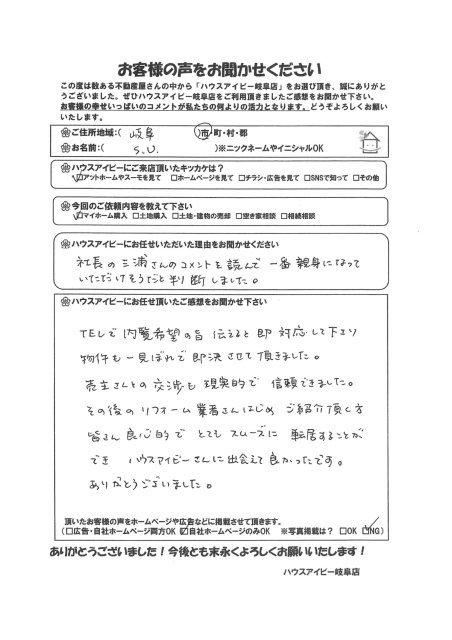 お客様の声をお聞かせください
この度は数ある不動産屋さんの中から「ハウスアイビー岐阜店」をお選び頂き、誠にありがと
うございました。ぜひハウスアイビー岐阜店をご利用頂きましたご感想をお聞かせ下さい。
お客様の幸せいっぱいのコメントが私たちの何よりの活力となります。どうぞよろしくお願い
いたします。
ご住所地域:( 岐阜 )市・町・村・郡
お名前:( S.U. )※ニックネームやイニシャルOK
ハウスアイビーにご来店頂いたキッカケは?
☑アットホームやスーモを見て □ホームページを見て □チラシ・広告を見て □SNSで知って □その他
今回のご依頼内容を教えて下さい
☑マイホーム購入 □土地購入 □土地・建物の売却 □空き家相談 □相続相談
ハウスアイビーにお任せいただいた理由をお聞かせください
社長の三浦さんのコメントを読んで一番親身になって
いただけそうだと判断しました。
ハウスアイビーにお任せ頂いたご感想をお聞かせ下さい
TELで内覧希望の旨伝えると即対応して下さり
物件も一見ぼれで即決させて頂きました。
売主さんとの交渉も現実的で信頼できました。
その後のリフォーム業者さんはじめ ご紹介頂く方
皆さん良心的で とてもスムーズに 転居することが
でき ハウスアイビーさんに出会えて良かったです。
ありがとうございました。
頂いたお客様の声をホームページや広告などに掲載させて頂きます。
(□広告・自社ホームページ両方OK ☑自社ホームページのみOK ※写真掲載は? □OK ☑NG)
ありがとうございました!今後とも末永くよろしくお願いいたします!
ハウスアイビー岐阜店